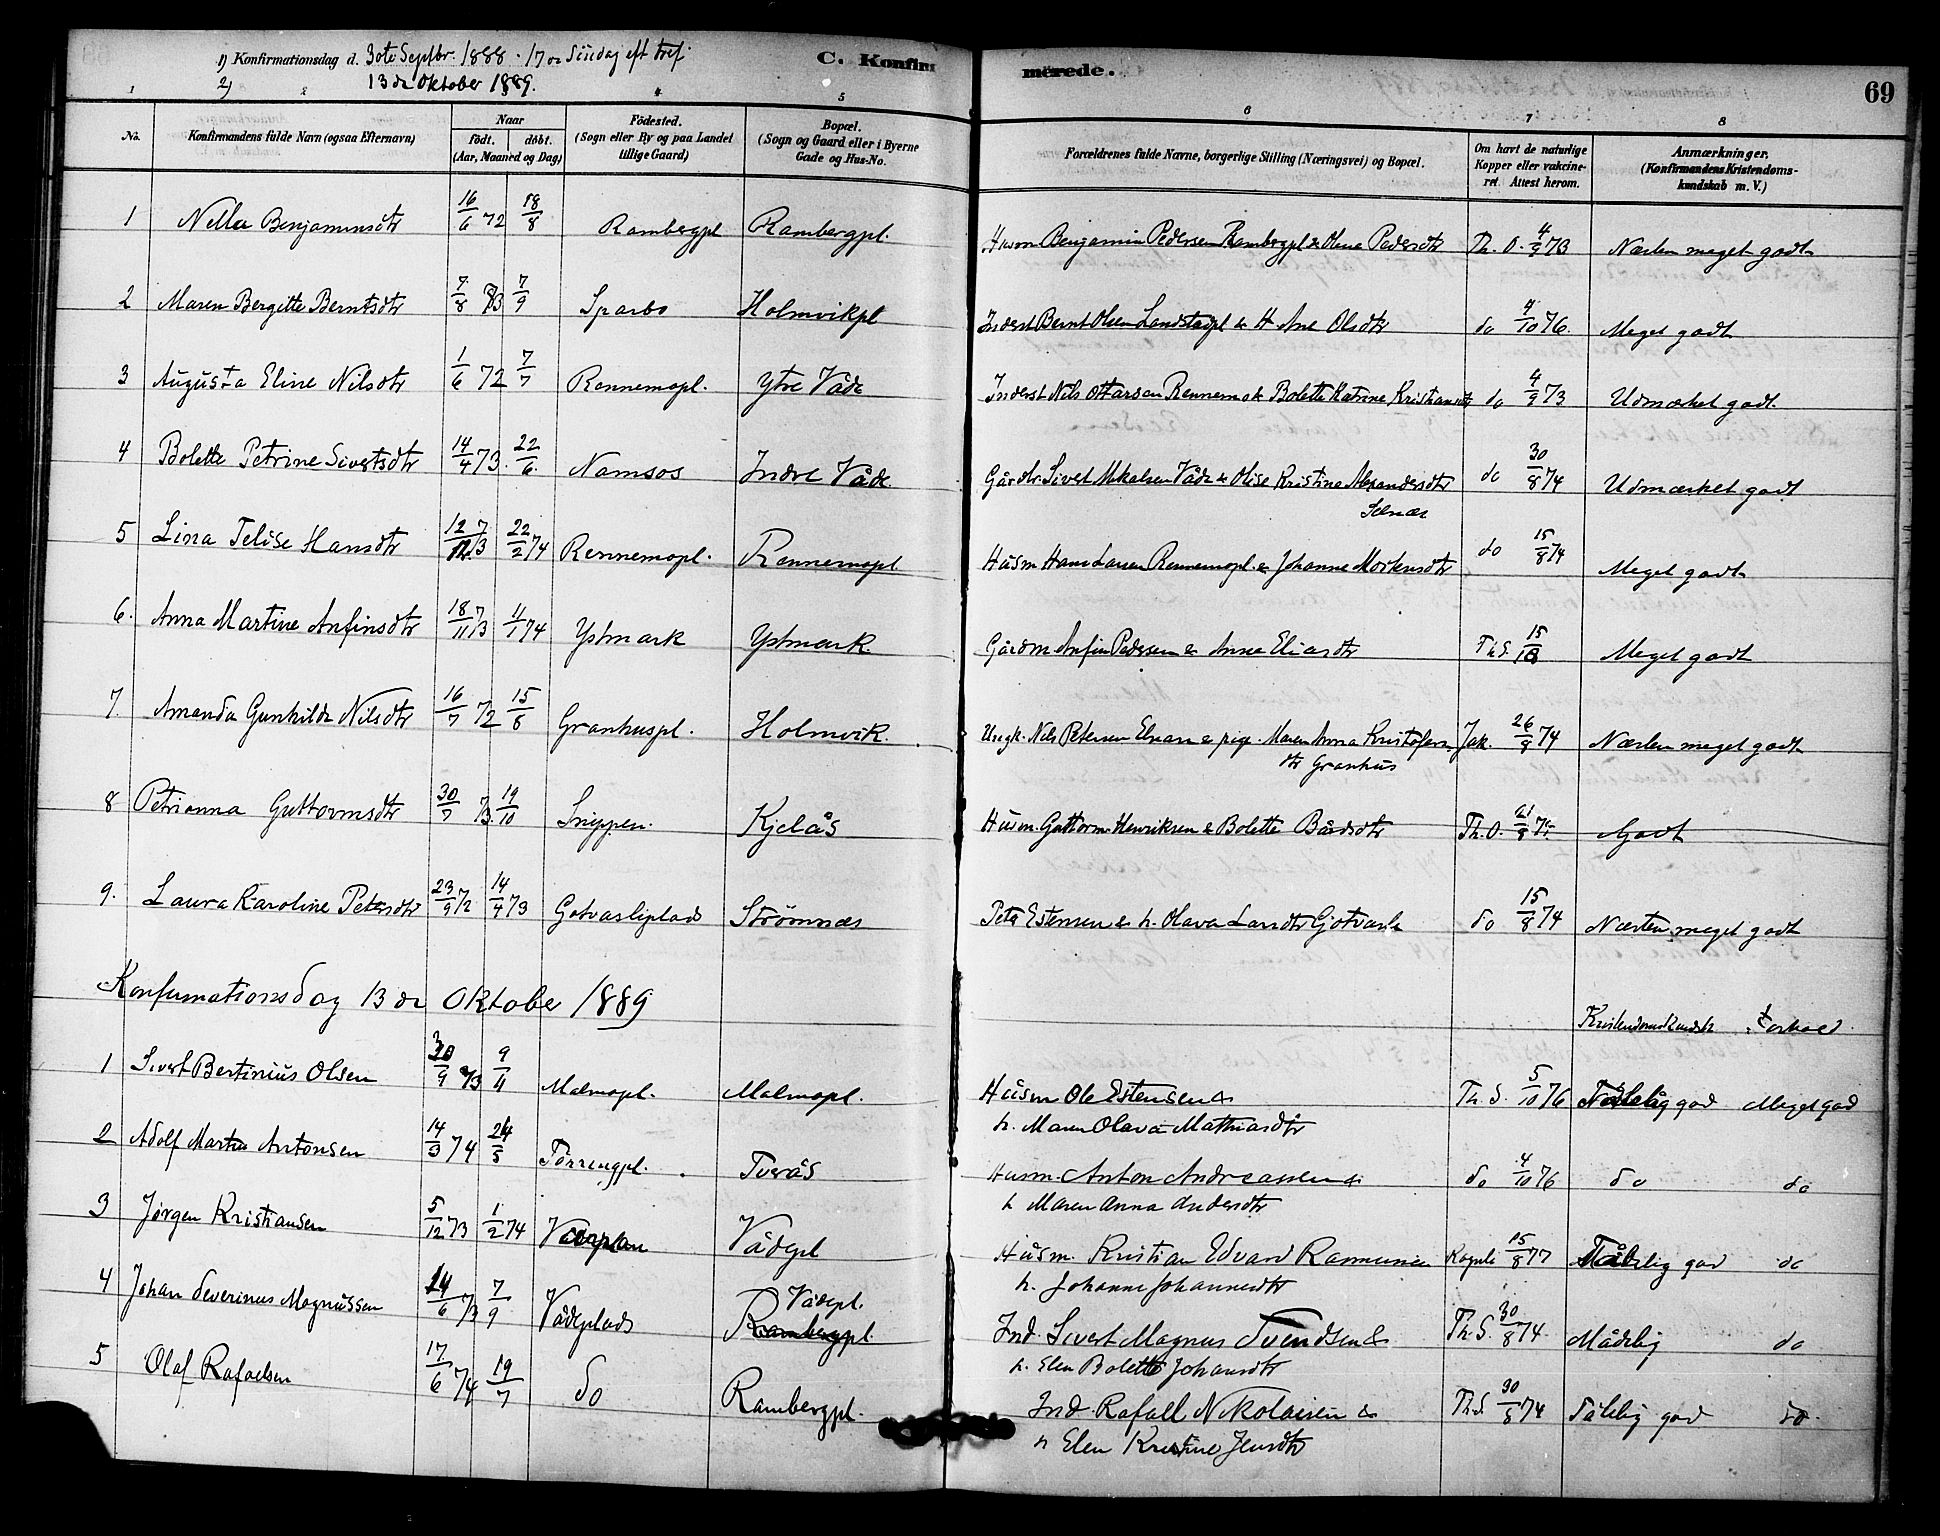 1) Konfirmationsdag d. 30te Septbr. 1888. 17de Søndag eft tref.
2) 13de Oktober 1889.
C. Konfirmerede.
69
1 2 4 5 6 7 8
No. Konfirmandens fulde Navn (ogsaa Efternavn) Naar født. døbt. (Aar, Maaned og Dag) Födested. (Sogn eller By og paa Landet tillige Gaard) Bopæl. (Sogn og Gaard eller i Byerne Gade og Hus-No. Forældrenes fulde Navne, borgerlige Stilling (Næringsvei) og Bopæl. Om havt de naturlige Kopper eller vakcineret. Attest herom. Anmærkninger. (Konfirmandens Kristendomskundskab m. V.)
1 Nella Benjaminsdtr 16/6 72 18/8 Rambergpl Rambergpl. Husm Benjamin Pedersen Rambergpl & Olena Pedersdtr Th. O. 4/9 73 Næsten meget godt
2 Maren Bergitte Berntsdtr 7/8 73 7/9 Sparbo Holmvikpl Inderst Bernt Olsen Landstadpl & H Ane Olsdtr do 4/10 76. Meget godt
3 Augusta Eline Nilsdtr 1/6 72 7/7 Rennemopl. Ytre Våde Inderst Nils Ottarsen Rennemo & Bolette Katrine Kristiansdtr do 4/9 73 Udmærket godt.
4 Bolette Petrine Sivertsdtr 14/4 73. 22/6. Namsos Indre Våde Gårdbr. Sivert Mikalsen Våde & Olise Kristine Alexandersdtr do 30/8 74 Udmærket godt
Selnæs
5 Lina Telise Hansdtr 12/12 73 22/2 74 Rennemopl. Rennemopl Husm Hans Larsen Rennemopl. & Johanne Mortensdtr do 15/8 74 Meget godt
6. Anna Martine Anfinsdtr 18/11 73 4/1 74 Ystmark Ystmark. Gårdm Anfin Pedersen & Anne Eliasdtr Th S. 15/ Meget godt
7. Amanda Gunhilda Nilsdtr 16/7 72 15/8 Granhuspl. Holmvik. Ungk. Nils Petersen Elnan & pige. Maren Anna Kristofers Jak. 26/8 74 Næsten meget godt
dtr Granhus
8 Petrianna Guttormsdtr 30/7 73. 19/10 Snippen. Kjelås Husm. Guttorm Henriksen & Bolette Bårdsdtr Th. O. Godt
9. Laura Karoline Petersdtr 23/9 72 14/4 73 Gotvasliplads Strømnæs Peter Estensen & h. Olava Larsdtr Gjotvasli do 15/8 74 Næsten meget godt
Konfirmationsdag 13de Oktober 1889
Kristendomskundsk. Forhold.
1 Sivert Bertinius Olsen 30/9 73 9/11 Malmopl. Malmopl. Husm Ole Estensen & Th. S. 5/10 76 Tålelig god Meget god
h. Maren Olava Mathiasdtr
2 Adolf Martin Antonsen 14/3 74 24/5 Tørringpl. Tverås Husm Anton Andreassen & do 4/10 76 do do
h Maren Anna Andersdtr
3 Jørgen Kristiansen 5/12 73 1/2 74 Vådepl Husm. Kristian Edvard Rasmussen 15/8 77 Tålelig god do
h. Johanne Johannesdtr
4 Johan Severinus Magnussen 14/6 73 7/9 Vådeplads Vådepl. Rambergpl. Ind. Sivert Magnus Svendsen & Th. S. 30/8 74 Mådelig do
h. Elen Bolette Johansdtr
5 Olaf Rafaelsen 17/6 74 19/7 do Rambergpl. Ind. Rafael Nikolaisen & Th. S. 30/8 74 Tålelig god do
h Elen Kristine Jensdtr